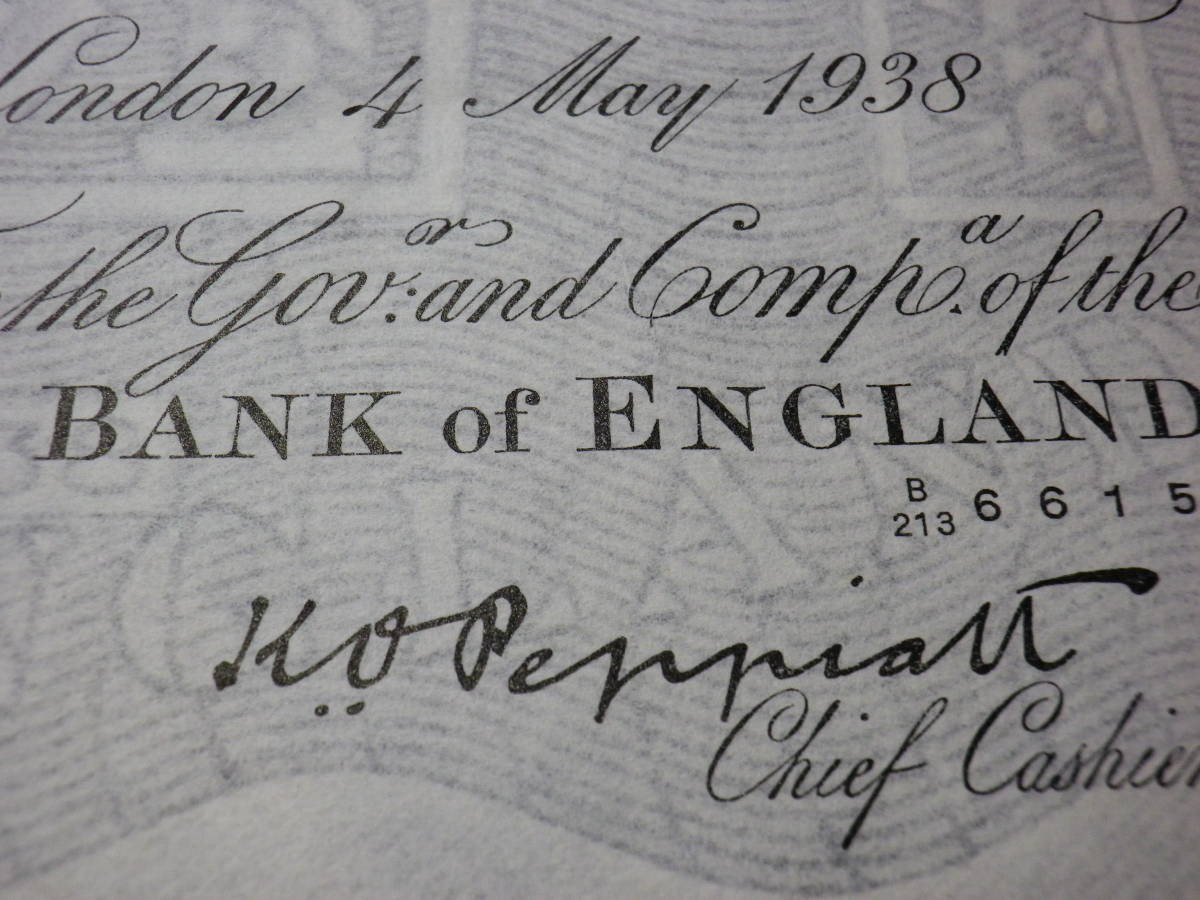 London 4 May 1938
the Gov.r and Comp.a of the
BANK of ENGLAND
B
213 6615
K O Peppiatt
Chief Cashier